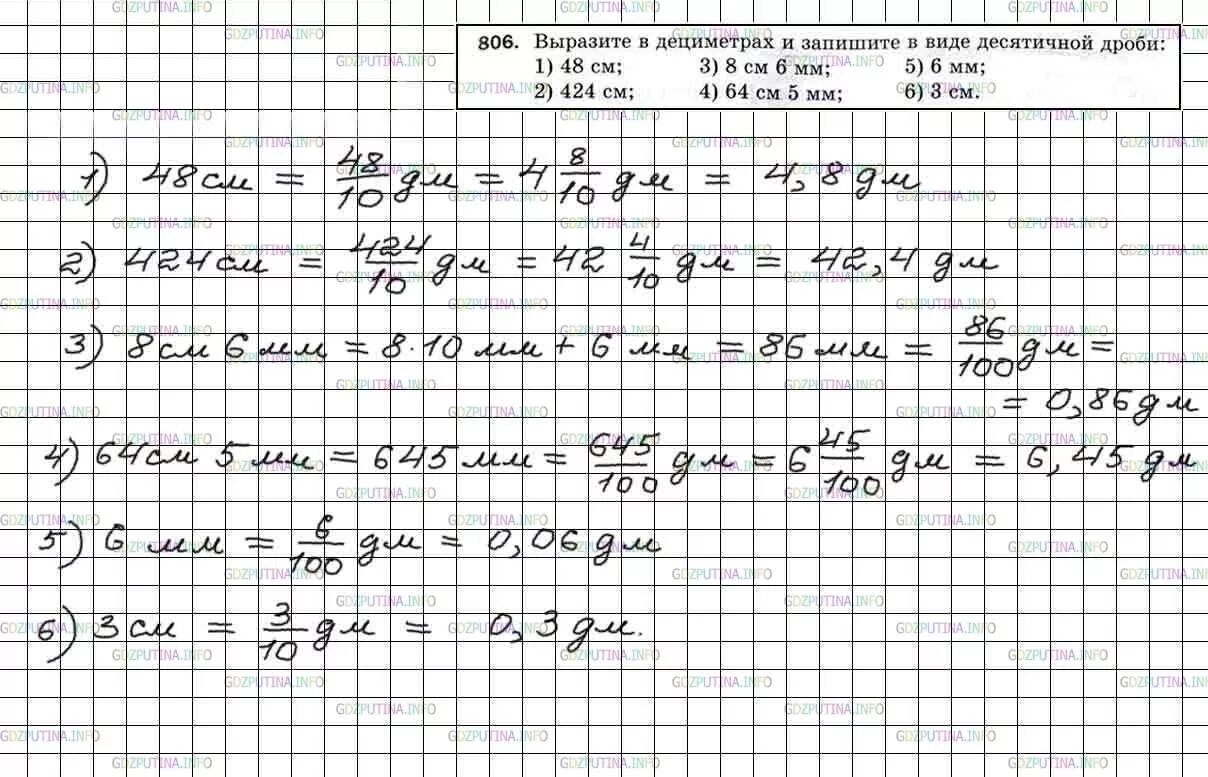 806. Выразите в дециметрах и запишите в виде десятичной дроби:
1) 48 см; 3) 8 см 6 мм; 5) 6 мм;
2) 424 см; 4) 64 см 5 мм; 6) 3 см.
1) 48 см = 48/10 дм = 4 8/10 дм = 4,8 дм
2) 424 см = 424/10 дм = 42 4/10 дм = 42,4 дм
3) 8 см 6 мм = 8·10 мм + 6 мм = 86 мм = 86/100 дм =
= 0,86 дм
4) 64 см 5 мм = 645 мм = 645/100 дм = 6 45/100 дм = 6,45 дм
5) 6 мм = 6/100 дм = 0,06 дм
6) 3 см = 3/10 дм = 0,3 дм.
GDZPUTINA.INFO